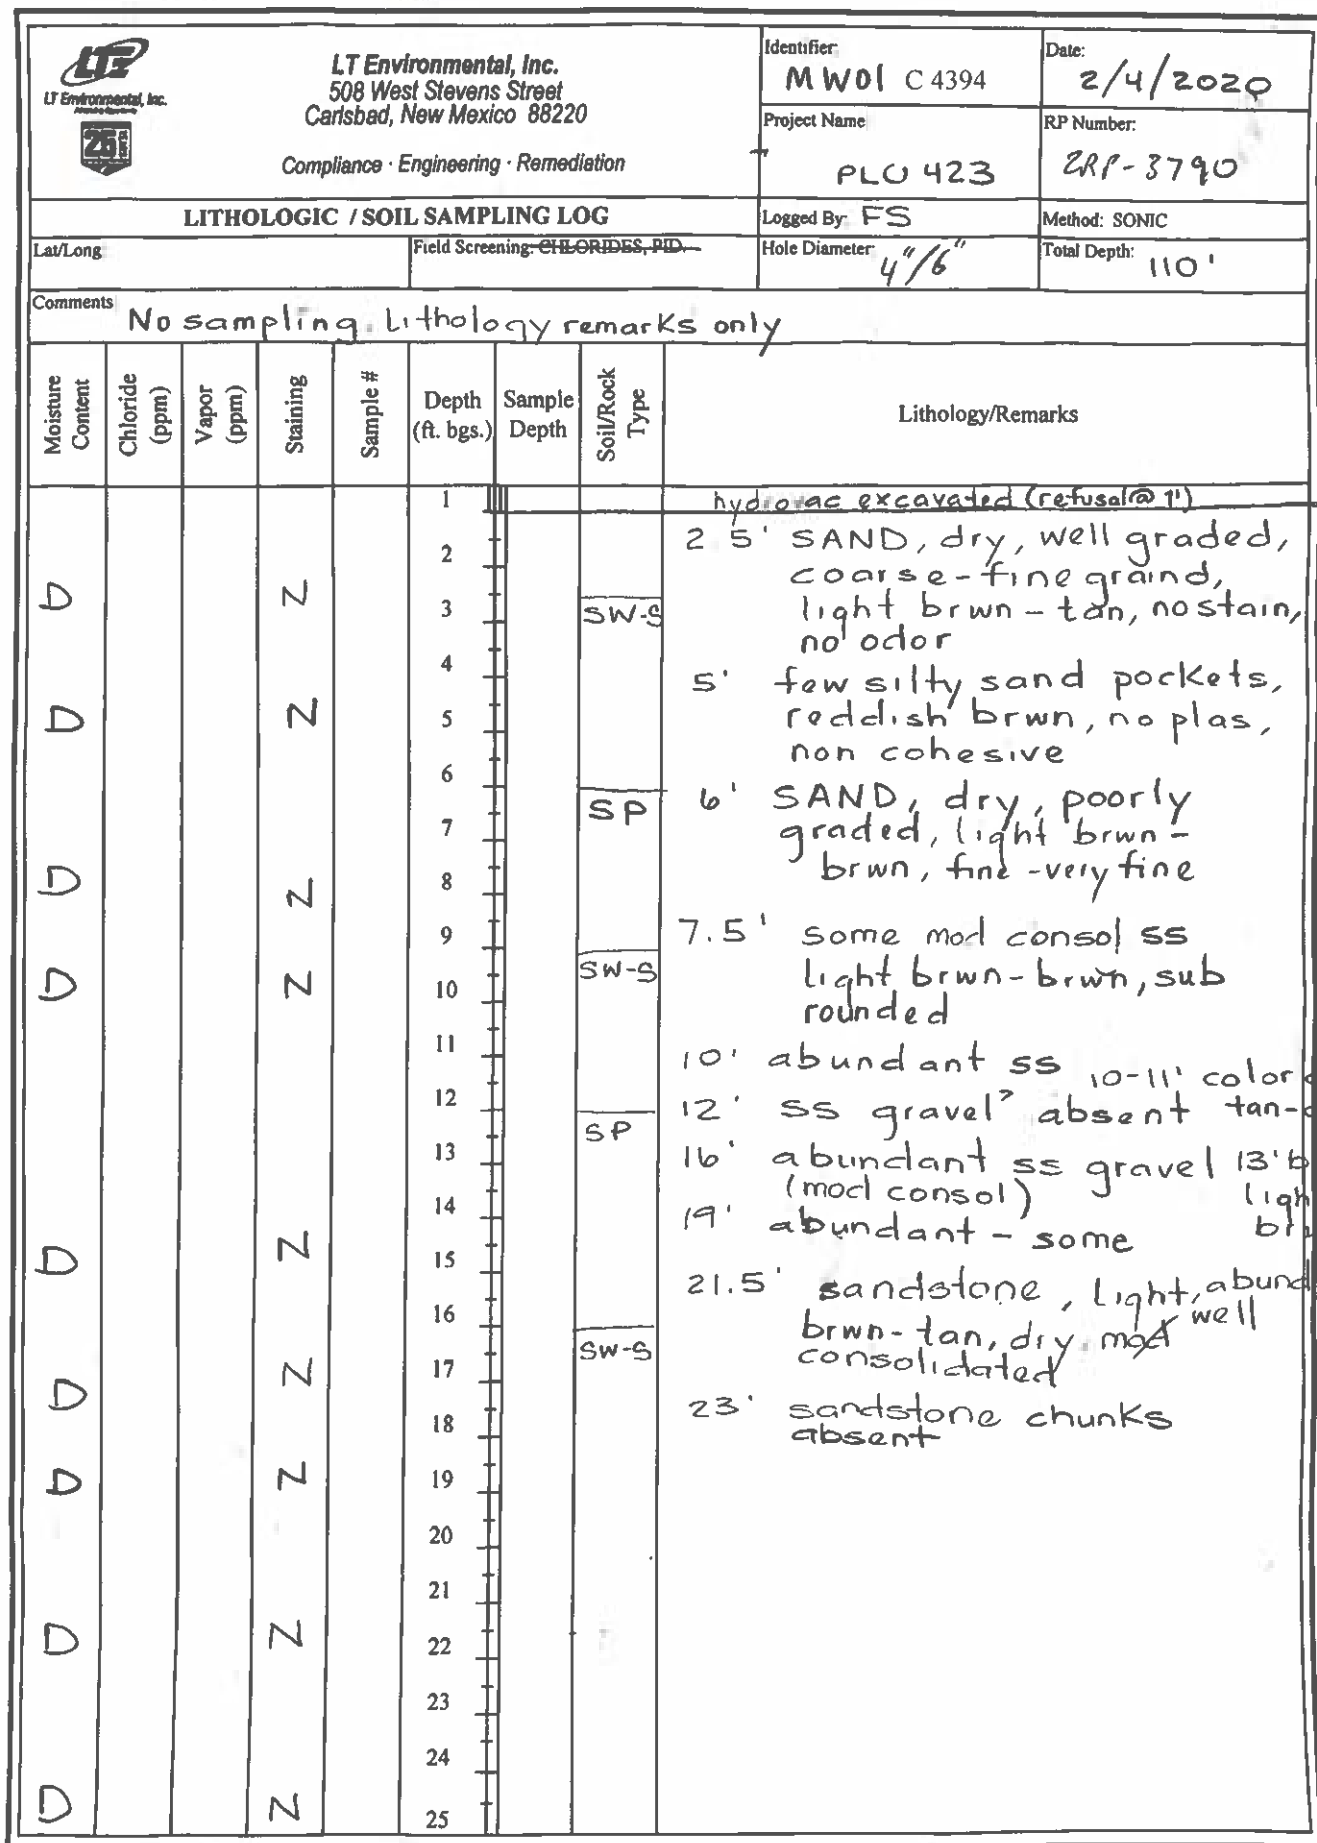 LTE
LT Environmental, Inc.
25
LT Environmental, Inc.
508 West Stevens Street
Carlsbad, New Mexico 88220
Compliance · Engineering · Remediation
Identifier: MW01 C 4394
Date: 2/4/2020
Project Name: PLU 423
RP Number: 2RP-3790
LITHOLOGIC / SOIL SAMPLING LOG
Logged By: FS
Method: SONIC
Lat/Long
Field Screening: CHLORIDES, PID
Hole Diameter: 4"/6"
Total Depth: 110'
Comments No sampling. Lithology remarks only
Moisture Content
Chloride (ppm)
Vapor (ppm)
Staining
Sample #
Depth (ft. bgs.)
Sample Depth
Soil/Rock Type
Lithology/Remarks
1 hydrovac excavated (refusal @ 1')
2 2.5' SAND, dry, well graded,
coarse-fine graind,
D N 3 SW-S light brwn-tan, no stain,
no odor
4 5' few silty sand pockets,
D N 5 reddish brwn, no plas,
non cohesive
6 SP 6' SAND, dry, poorly
7 graded, light brwn-
D N 8 brwn, fine-very fine
9 7.5' some mod consol ss
D N 10 SW-S light brwn-brwn, sub
rounded
11 10' abundant ss 10-11' color
12 12' ss gravel absent tan-
13 SP 16' abundant ss gravel 13'
14 (mod consol)
19' abundant - some
D N 15 21.5' sandstone, light, abund
16 brwn-tan, dry, mod well
D N 17 SW-S consolidated
18 23' sandstone chunks
absent
D N 19
20
21
D N 22
23
24
D N 25